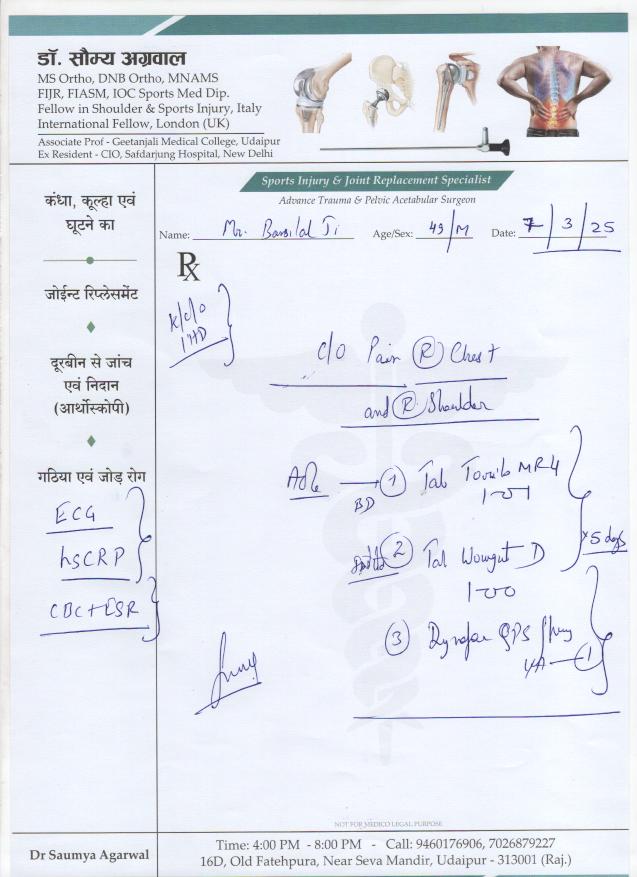 डॉ. सौम्य अग्रवाल
MS Ortho, DNB Ortho, MNAMS
FIJR, FIASM, IOC Sports Med Dip.
Fellow in Shoulder & Sports Injury, Italy
International Fellow, London (UK)
Associate Prof - Geetanjali Medical College, Udaipur
Ex Resident - CIO, Safdarjung Hospital, New Delhi
Sports Injury & Joint Replacement Specialist
Advance Trauma & Pelvic Acetabular Surgeon
Name: Mr. Bansilal Ji Age/Sex: 49/M Date: 7/3/25
कंधा, कूल्हा एवं
घूटने का
जोईन्ट रिप्लेसमेंट
दूरबीन से जांच
एवं निदान
(आर्थोस्कोपी)
गठिया एवं जोड़ रोग
ECG
hsCRP
CBC + ESR
Rx
K/c/o
IHD
c/o Pain (R) Chest
and (R) Shoulder
BD (1) Tab MR4
1-0-1
(2) Tab D
1-0-0
x 5 days
(3) Spray
(1)
NOT FOR MEDICO LEGAL PURPOSE
Dr Saumya Agarwal
Time: 4:00 PM - 8:00 PM - Call: 9460176906, 7026879227
16D, Old Fatehpura, Near Seva Mandir, Udaipur - 313001 (Raj.)